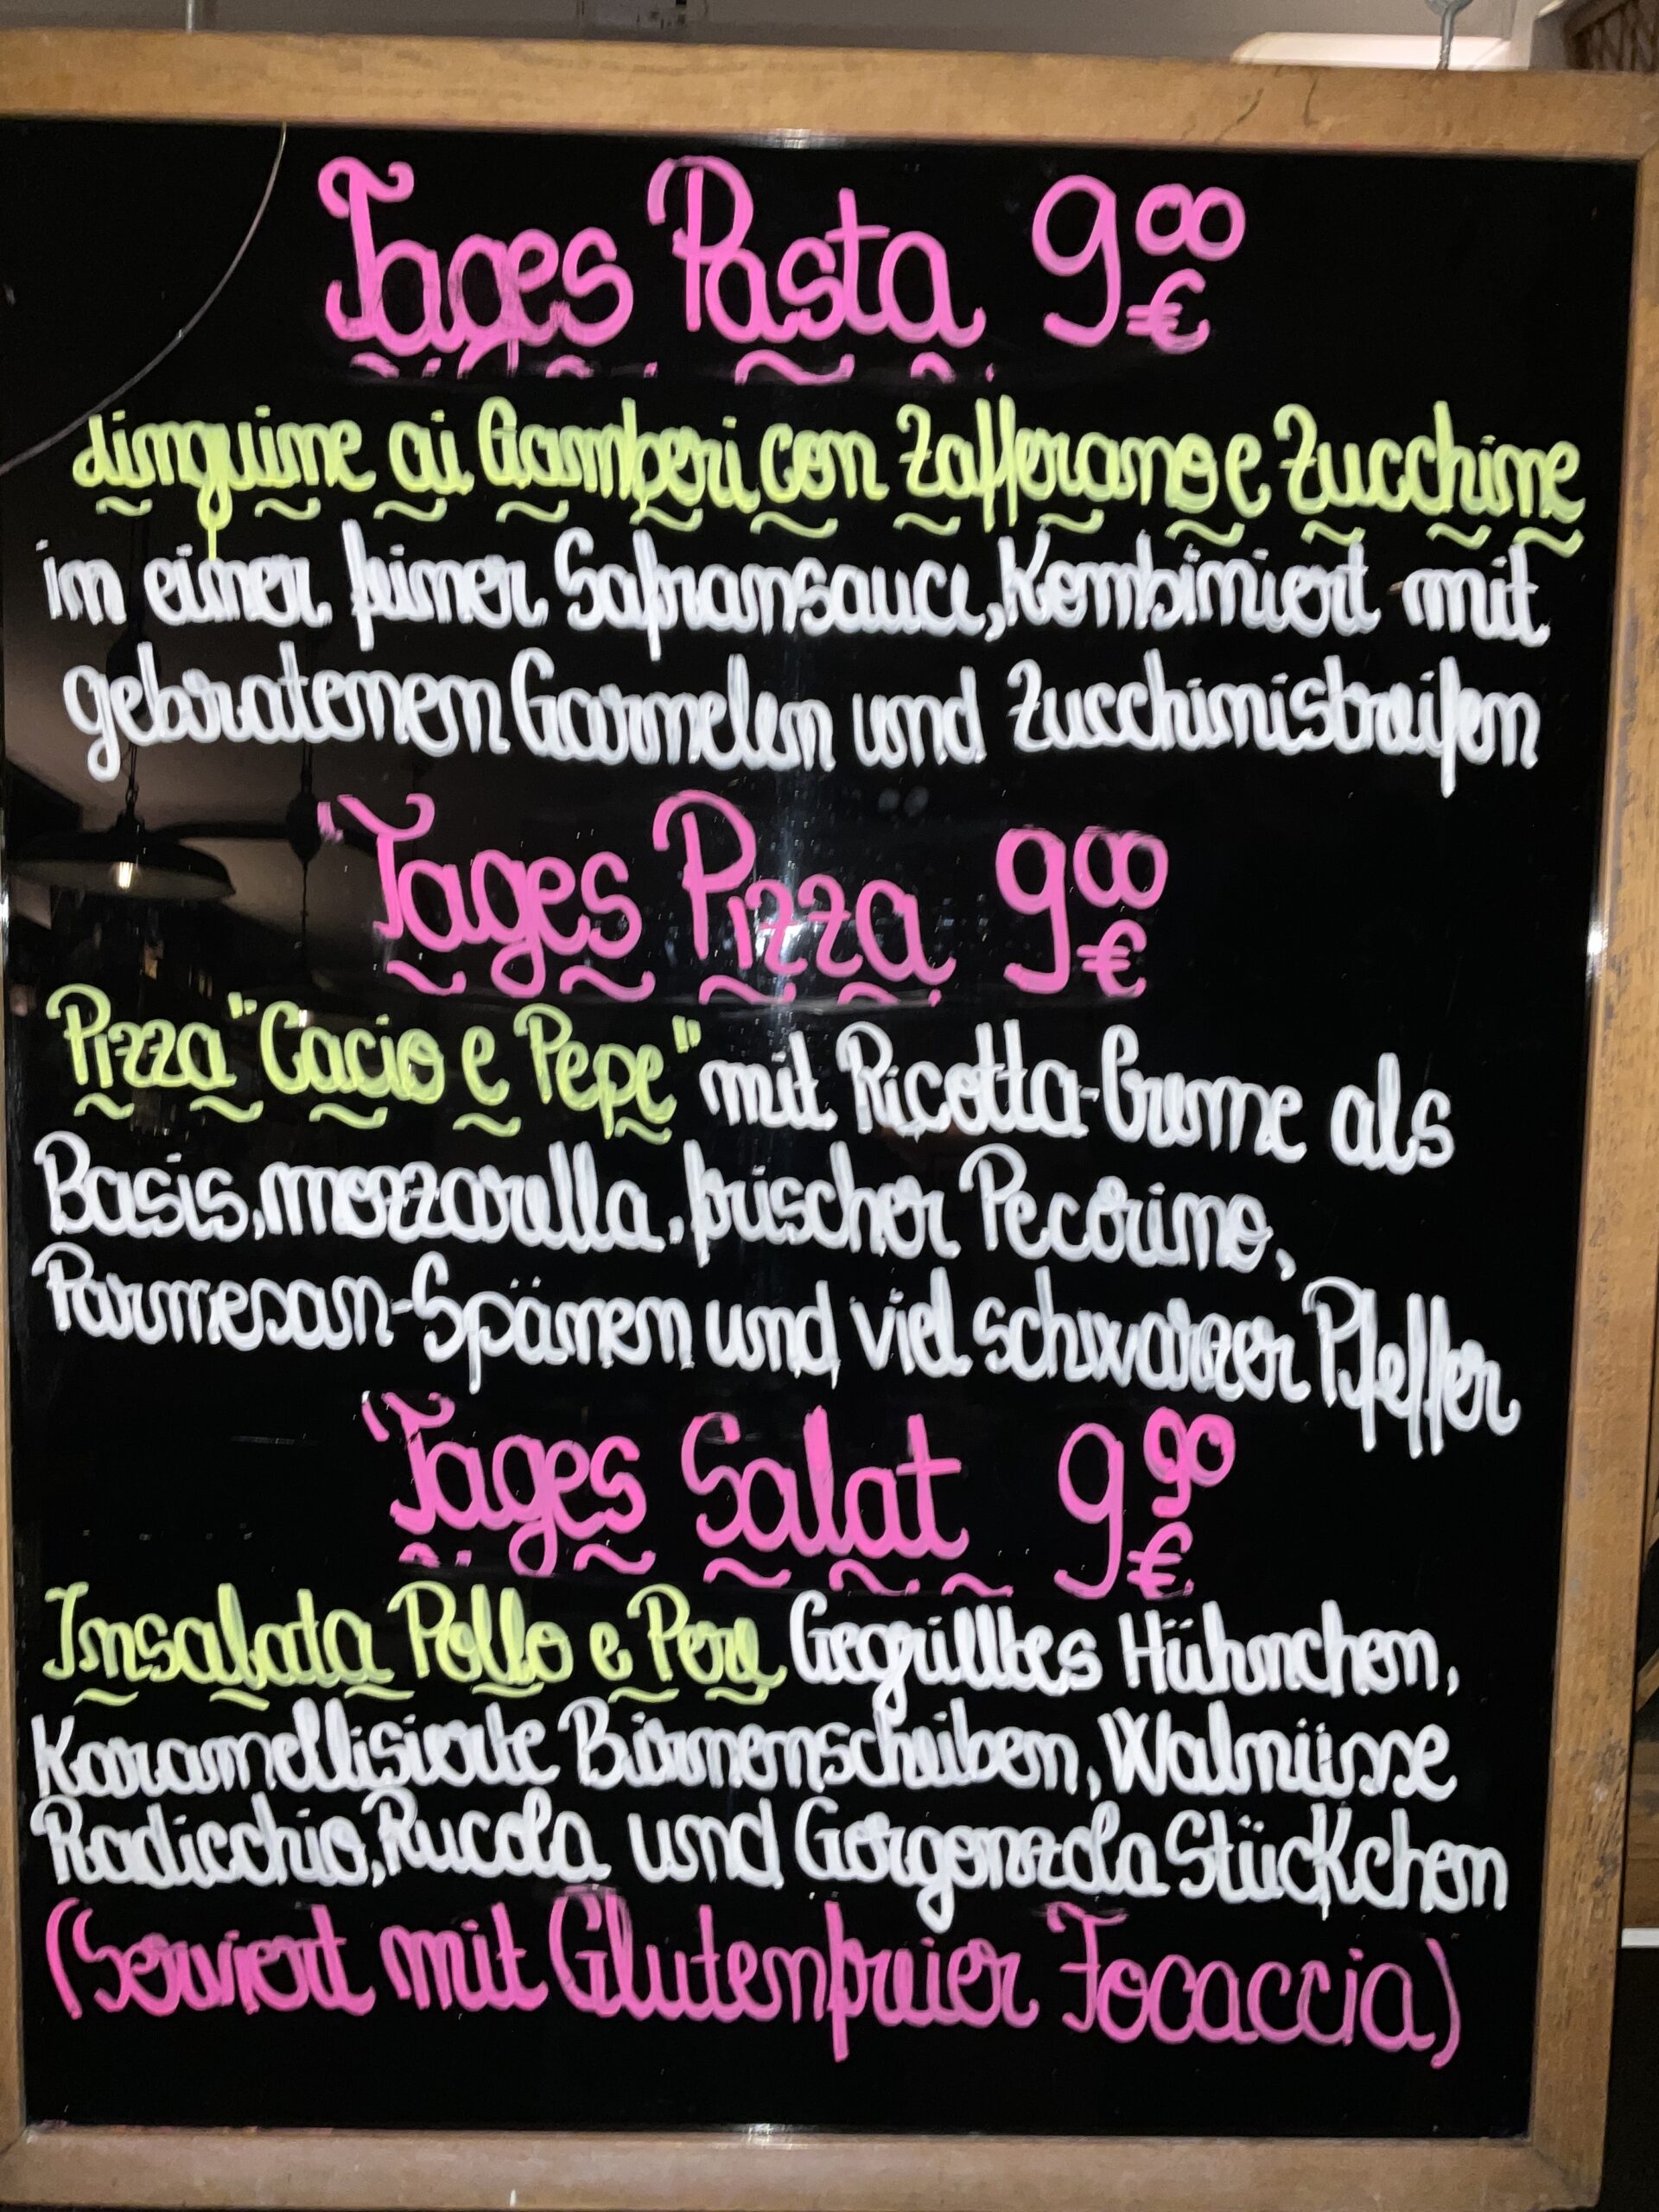 Tages Pasta 9⁰⁰ €
Linguine ai Gamberi con Zafferano e Zucchine
in einer feiner Safransauce, Kombiniert mit
gebratenen Garnelen und Zucchinistreifen
Tages Pizza 9⁰⁰ €
Pizza "Cacio e Pepe" mit Ricotta-Creme als
Basis, mozzarella, frischer Pecorino,
Parmesan-Spänen und viel schwarzer Pfeffer
Tages Salat 9⁹⁰ €
Insalata Pollo e Pere Gegrilltes Hühnchen,
Karamellisierte Birnenscheiben, Walnüsse
Radicchio, Rucola und Gorgonzola Stückchen
(Serviert mit Glutenfreier Focaccia)